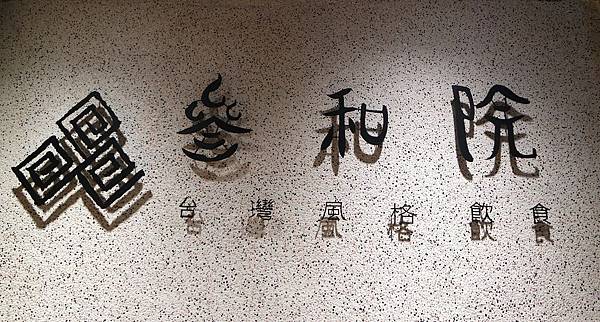 叁和院
台灣風格飲食